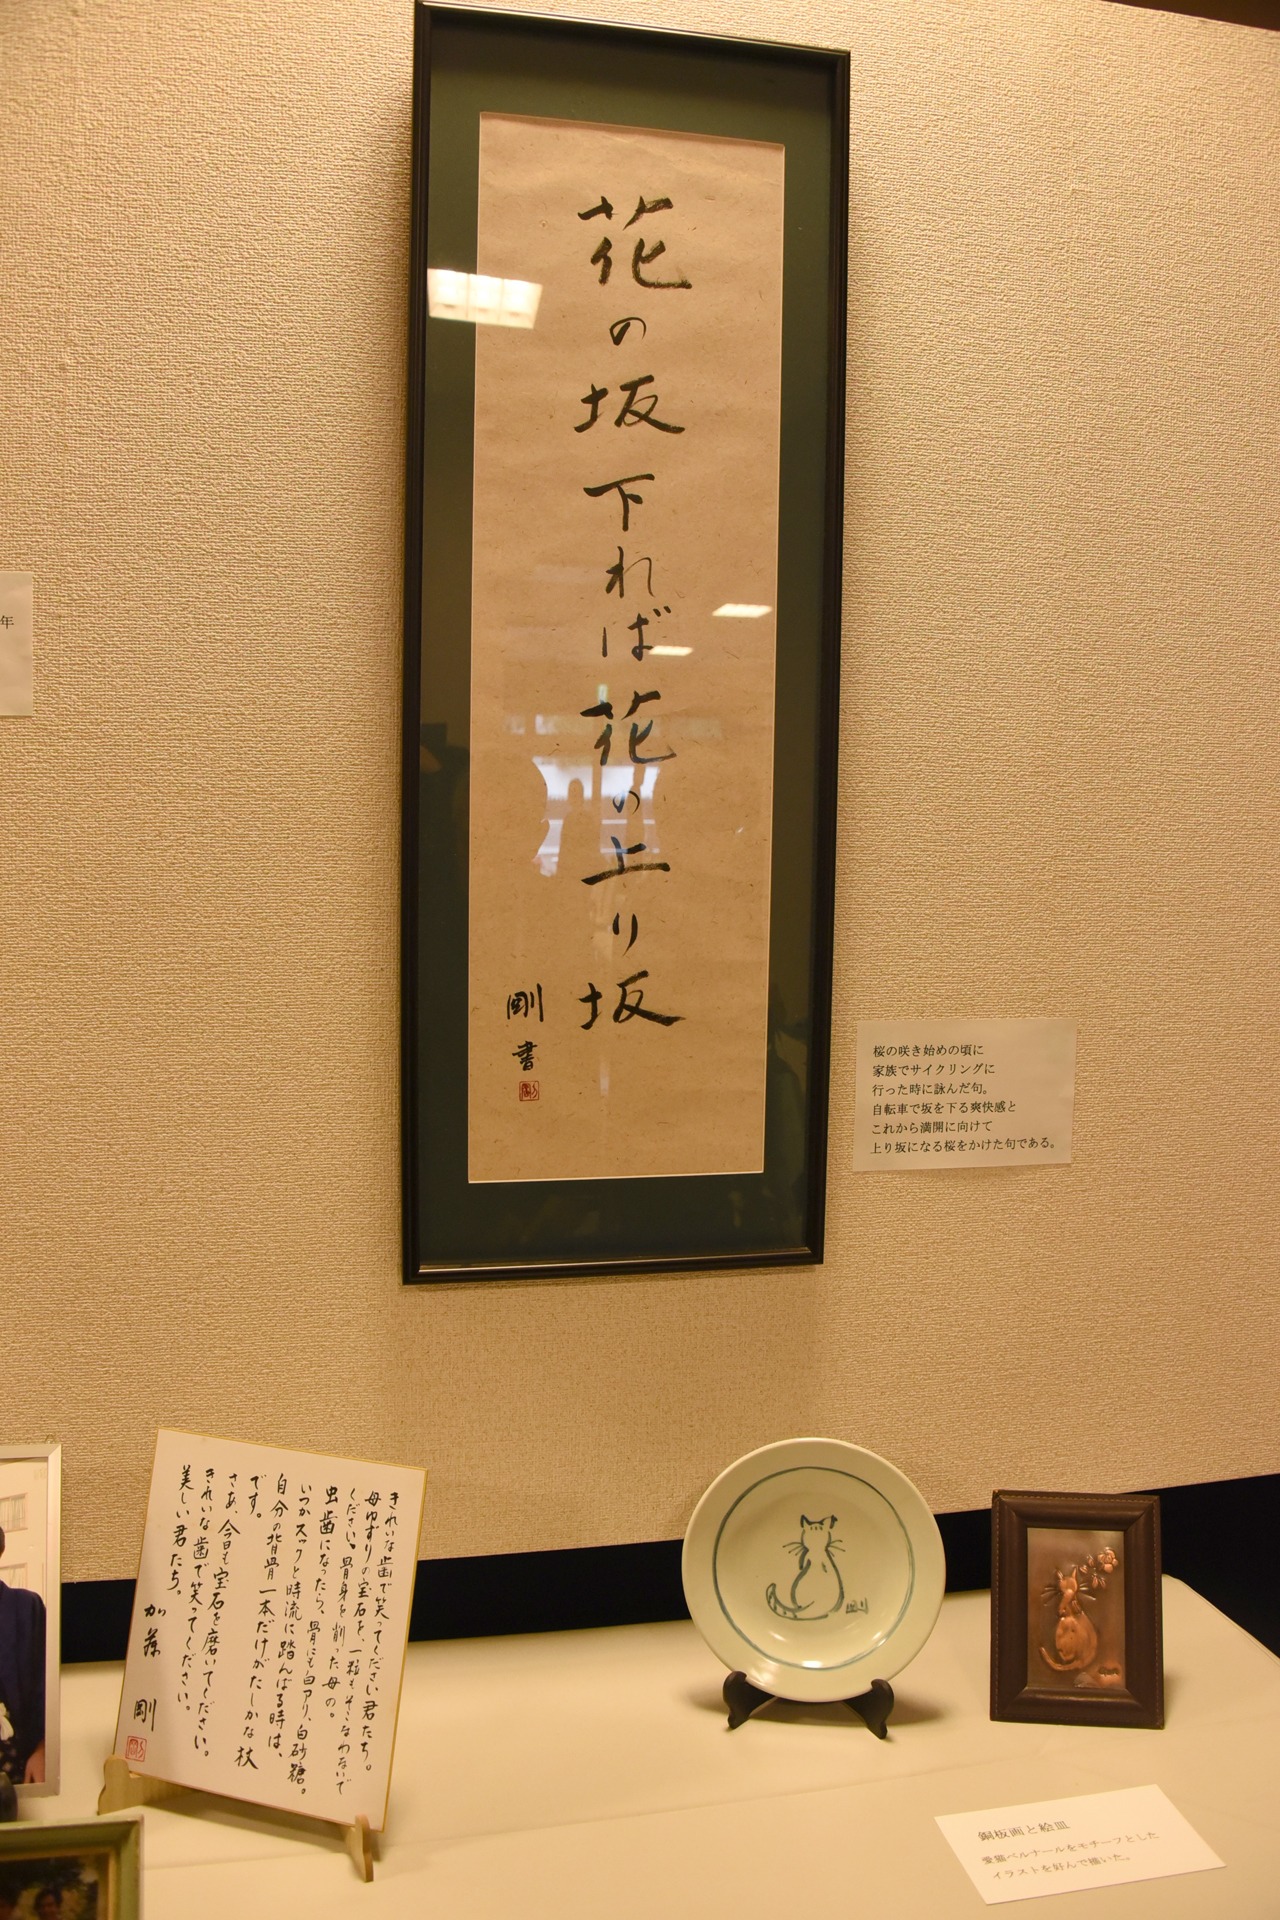 花の坂下れば花の上り坂
剛書
剛
桜の咲き始めの頃に
家族でサイクリングに
行った時に詠んだ句。
自転車で坂を下る爽快感と
これから満開に向けて
上り坂になる桜をかけた句である。
年
きれいな歯で笑ってください君たち。
母ゆずりの宝石を、一粒もそこなわないで
ください。骨身を削った母の。
虫歯になったら、骨にも白アリ、白砂糖。
いつかスックと時流に踏んばる時は、
自分の背骨一本だけがたしかな杖
です。
さあ、今日も宝石を磨いてください。
きれいな歯で笑ってください。
美しい君たち。
加藤 剛
剛
剛
銅板画と絵皿
愛猫ベルナールをモチーフとした
イラストを好んで描いた。